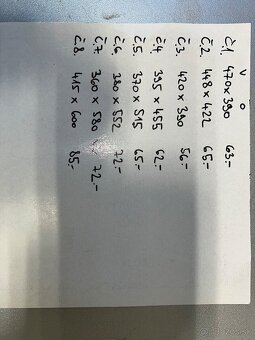 V Š
č.1. 470 x 390 63.-
č.2. 448 x 422 65.-
č.3. 420 x 390 56.-
č.4. 395 x 455 62.-
č.5. 370 x 515 65.-
č.6. 380 x 552 72.-
č.7. 360 x 580 72.-
č.8. 415 x 600 85.-